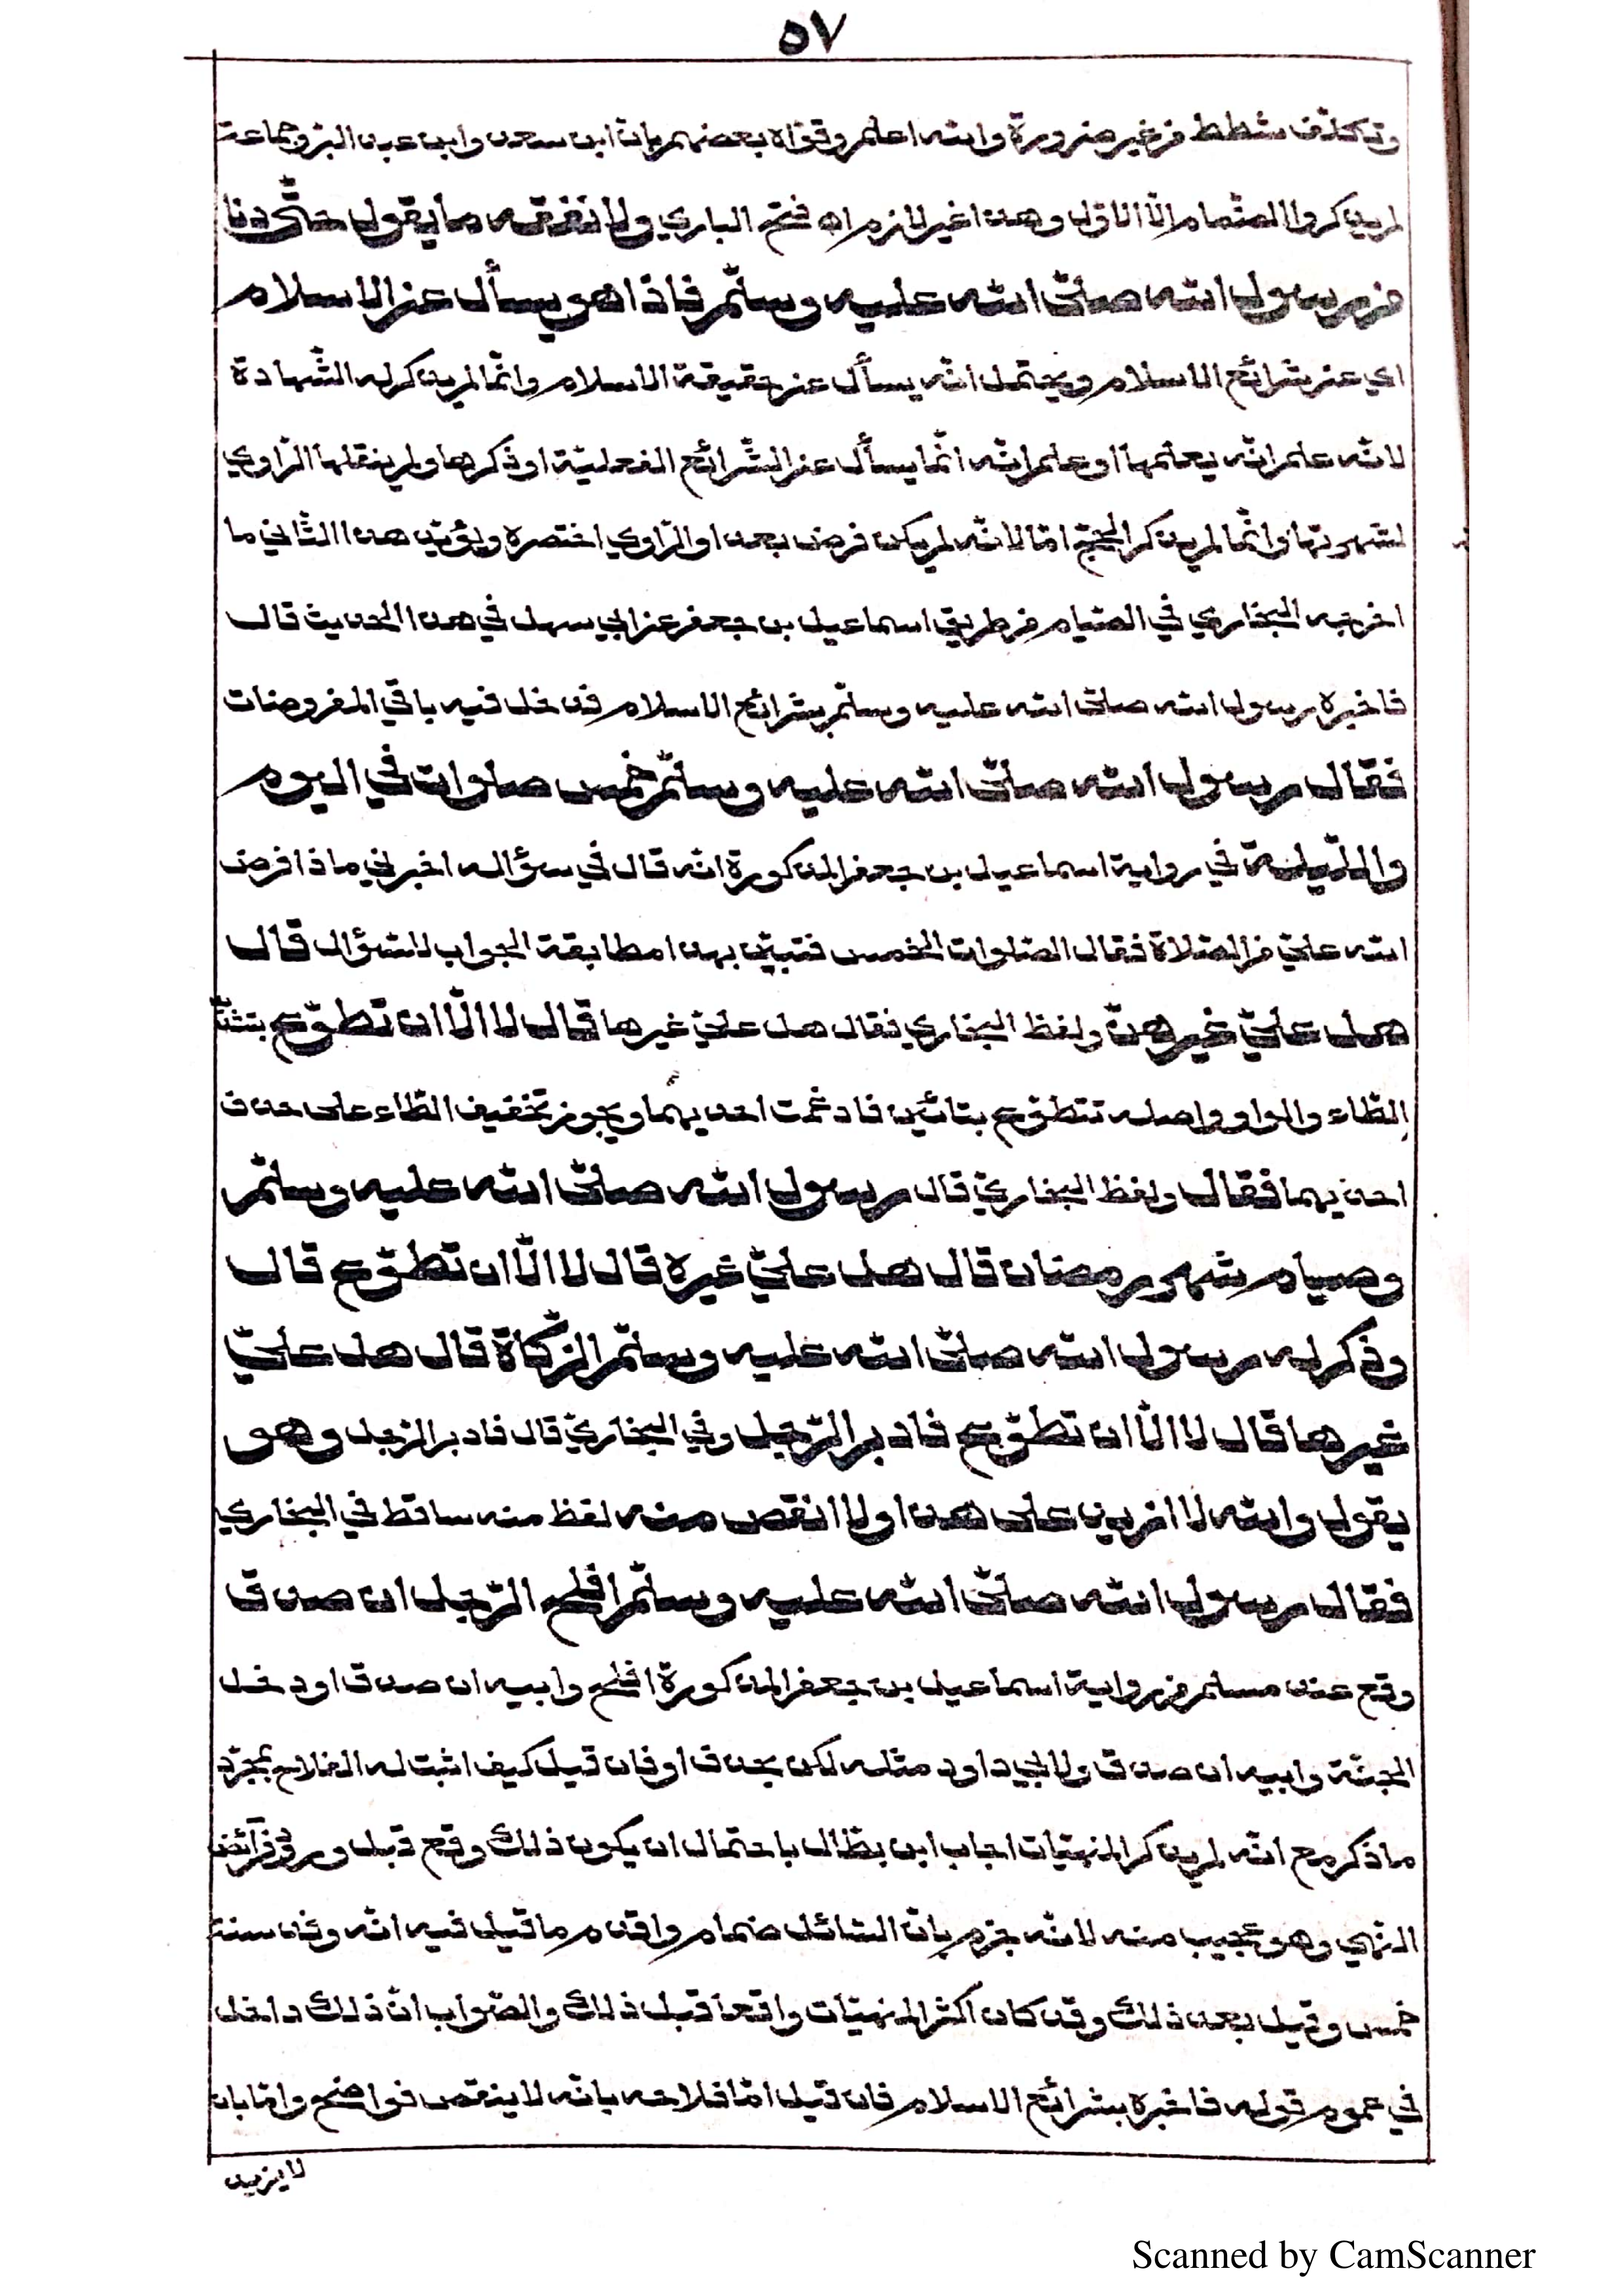 ٥٧
وتكلّف شطط من غير ضرورة والله اعلم وقوّاه بعضهم بان ابن سعد وابن عبد البرّ وجماعة
لم يذكروا لضمام الّا الاوّل وهذا غير لازم اه فتح الباري ولا نفقه ما يقول حتّى دنا
من رسول الله صلّى الله عليه وسلّم فاذا هو يسأل عن الاسلام
اي عن شرائع الاسلام ويحتمل انّه يسأل عن حقيقة الاسلام وانّما لم يذكر له الشّهادة
لانّه علم انّه يعلمها او علم انّه انّما يسأل عن الشّرائع الفعليّة او ذكرها ولم ينقلها الرّاوي
لشهرتها وانّما لم يذكر الحجّ امّا لانّه لم يكن فرض بعد او الرّاوي اختصره ويؤيّد هذا الثّاني ما
اخرجه البخاري في الصّيام من طريق اسماعيل بن جعفر عن ابي سهل في هذا الحديث قال
فاخبره رسول الله صلّى الله عليه وسلّم بشرائع الاسلام فدخل فيه باقي المفروضات
فقال رسول الله صلّى الله عليه وسلّم خمس صلوات في اليوم
واللّيلة في رواية اسماعيل بن جعفر المذكورة انّه قال في سؤاله اخبرني ماذا فرض
الله عليّ من الصّلاة فقال الصّلوات الخمس فتبيّن بهذا مطابقة الجواب للسّؤال قال
هل عليّ غيرهنّ ولفظ البخاري فقال هل عليّ غيرها قال لا الّا ان تطوّع بتشديد
الطّاء والواو واصله تتطوّع بتائين فادغمت احديهما ويجوز تخفيف الطّاء على حذف
احديهما فقال ولفظ البخاريّ قال رسول الله صلّى الله عليه وسلّم
وصيام شهر رمضان قال هل عليّ غيره قال لا الّا ان تطوّع قال
وذكر له رسول الله صلّى الله عليه وسلّم الزّكاة قال هل عليّ
غيرها قال لا الّا ان تطوّع فادبر الرّجل وفي البخاريّ قال فادبر الرّجل وهو
يقول والله لا ازيد على هذا ولا انقص منه لفظ منه ساقط في البخاري
فقال رسول الله صلّى الله عليه وسلّم افلح الرّجل ان صدق
وقع عند مسلم من رواية اسماعيل بن جعفر المذكورة افلح وابيه ان صدق او دخل
الجنّة وابيه ان صدق ولابي داود مثله لكن بحذف او فان قيل كيف اثبت له الفلاح بمجرّد
ما ذكر مع انّه لم يذكر المنهيّات اجاب ابن بطّال باحتمال ان يكون ذلك وقع قبل ورود فرائض
النّهي وهو عجيب منه لانّه جزم بانّ السّائل ضمام واقدم ما قيل فيه انّه وفد سنة
خمس وقيل بعد ذلك وقد كان اكثر المنهيّات واقعا قبل ذلك والصّواب انّ ذلك داخل
في عموم قوله فاخبره بشرائع الاسلام فان قيل امّا فلاحه بانّه لا ينقص فواضح وامّا بان
لا يزيد
Scanned by CamScanner